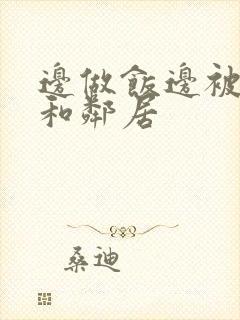 邊做飯邊被
和鄰居
桑迪